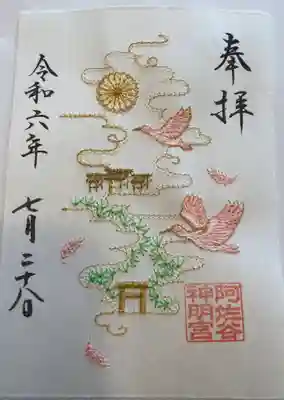 奉拝
阿佐谷
神明宮
令和六年
七月二十八日